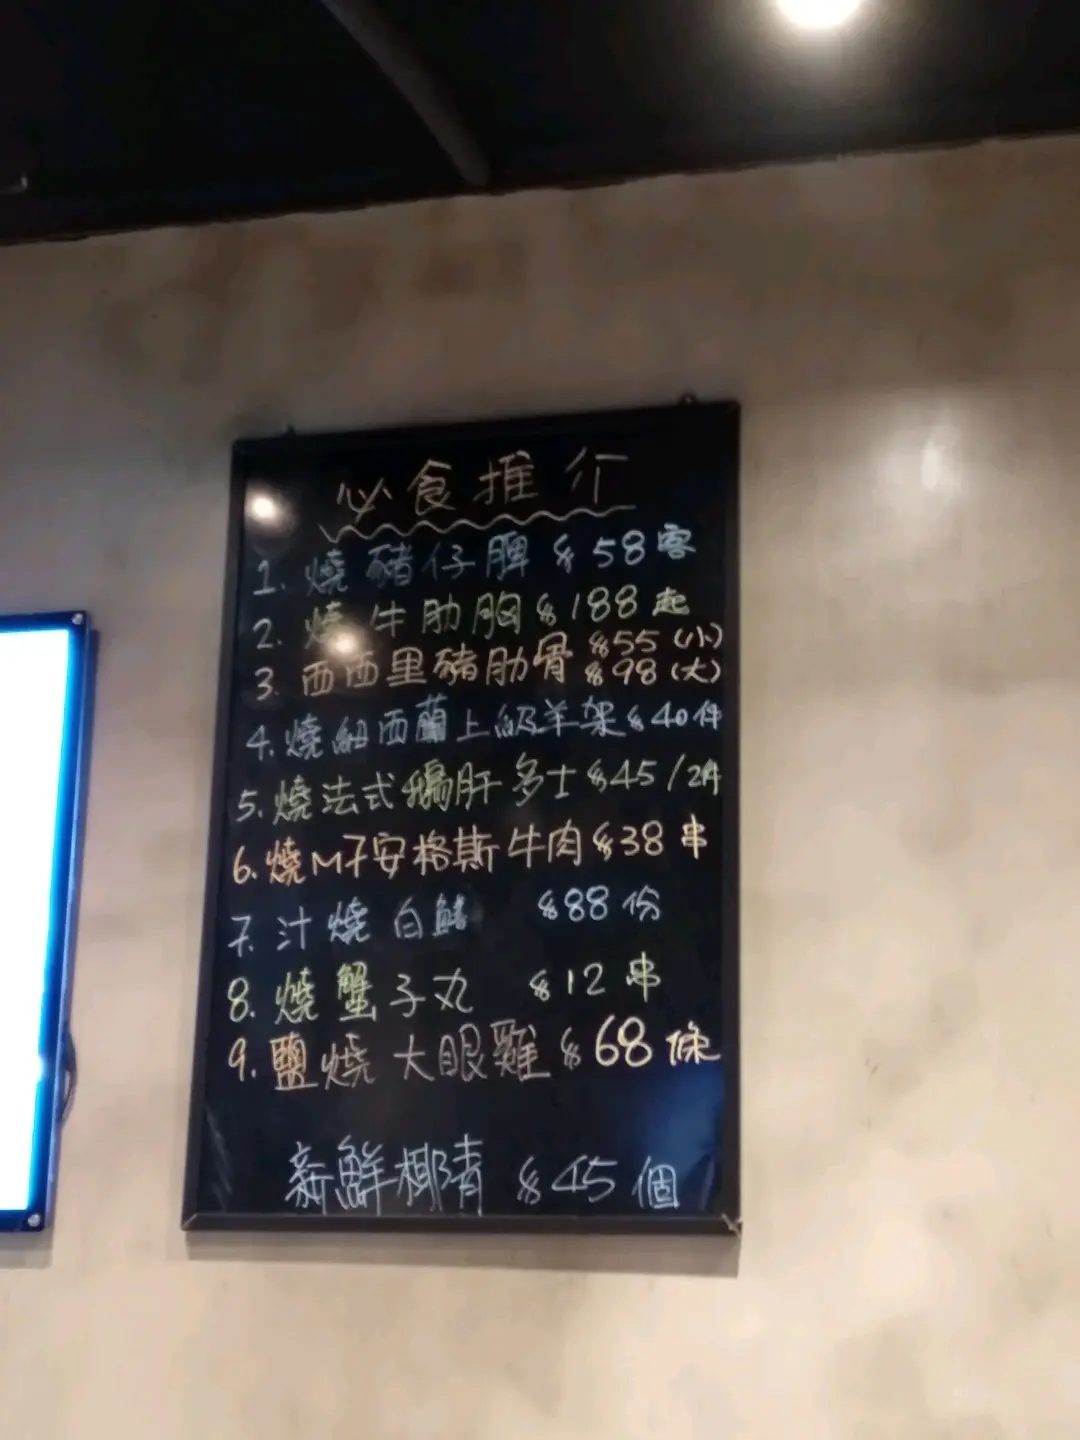 必食推介
1. 燒豬仔脾 $58客
2. 燒牛肋胸 $188起
3. 西西里豬肋骨 $55(小) $98(大)
4. 燒紐西蘭上級羊架 $40件
5. 燒法式鵝肝多士 $45/2件
6. 燒M7安格斯牛肉 $38串
7. 汁燒白鱔 $88份
8. 燒蟹子丸 $12串
9. 鹽燒大眼雞 $68條
新鮮椰青 $45個